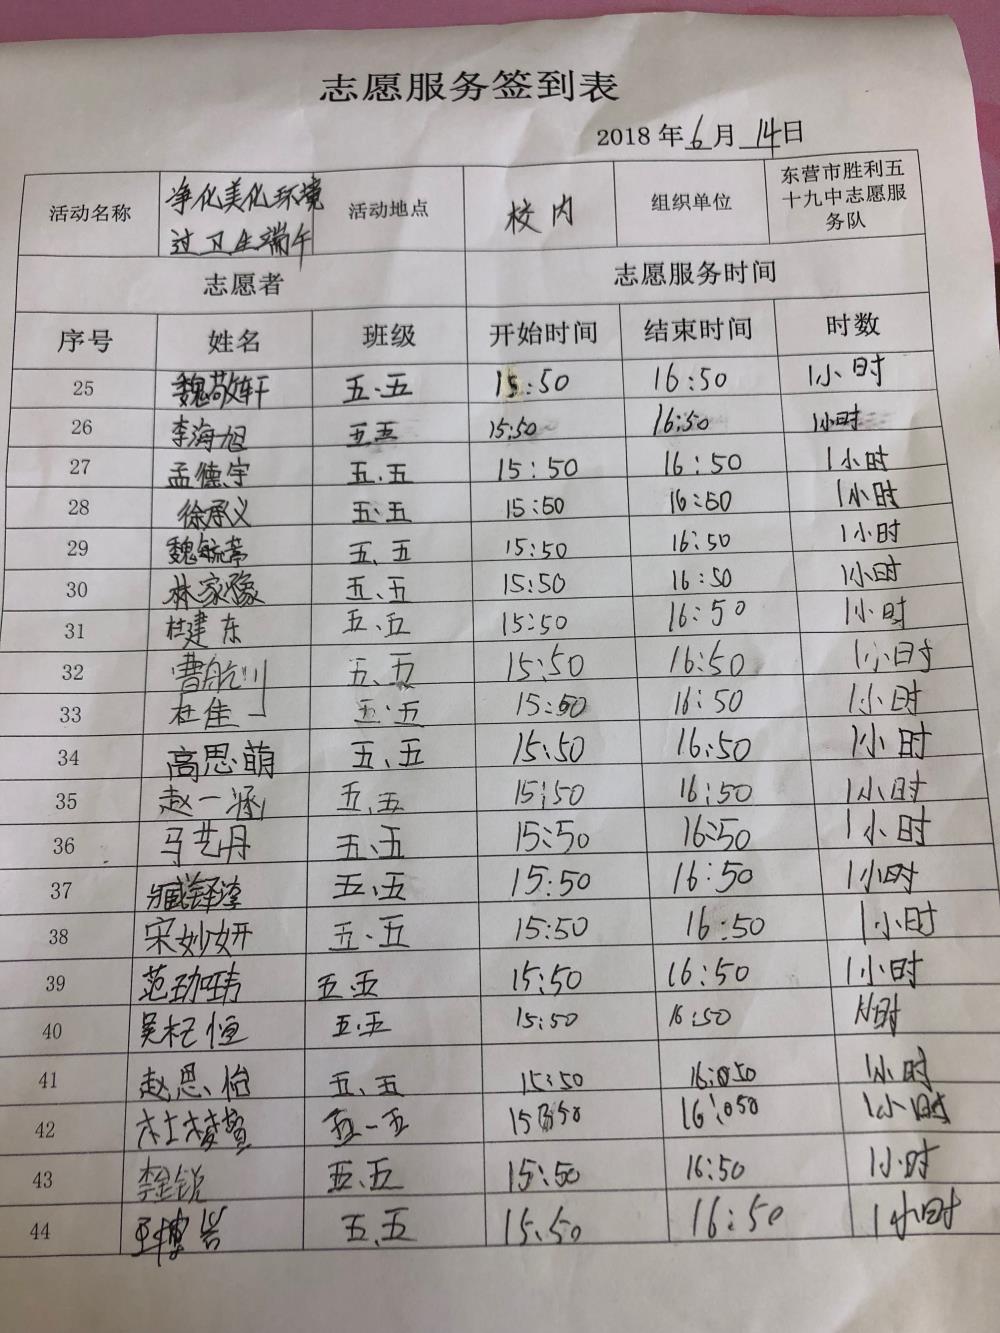 志愿服务签到表
2018年6月14日
活动名称 净化美化环境 过卫生端午 活动地点 校内 组织单位 东营市胜利五十九中志愿服务队
志愿者 志愿服务时间
序号 姓名 班级 开始时间 结束时间 时数
25 魏敬轩 五.五 15:50 16:50 1小时
26 李海旭 五五 15:50 16:50 1小时
27 孟德宇 五.五 15:50 16:50 1小时
28 徐承义 五.五 15:50 16:50 1小时
29 魏毓 五、五 15:50 16:50 1小时
30 林家豫 五.五 15:50 16:50 1小时
31 杜建东 五.五 15:50 16:50 1小时
32 曹航川 五、五 15:50 16:50 1小时
33 杜佳一 五.五 15:50 16:50 1小时
34 高思萌 五、五 15:50 16:50 1小时
35 赵一涵 五、五 15:50 16:50 1小时
36 马艺丹 五、五 15:50 16:50 1小时
37 臧铎淳 五、五 15:50 16:50 1小时
38 宋妙妍 五.五 15:50 16:50 1小时
39 范珈玮 五.五 15:50 16:50 1小时
40 吴杞恒 五.五 15:50 16:50 1小时
41 赵恩怡 五、五 15:50 16:50 1小时
42 杜 五一五 15:50 16:50 1小时
43 李锐 五、五 15:50 16:50 1小时
44 王博 五、五 15:50 16:50 1小时